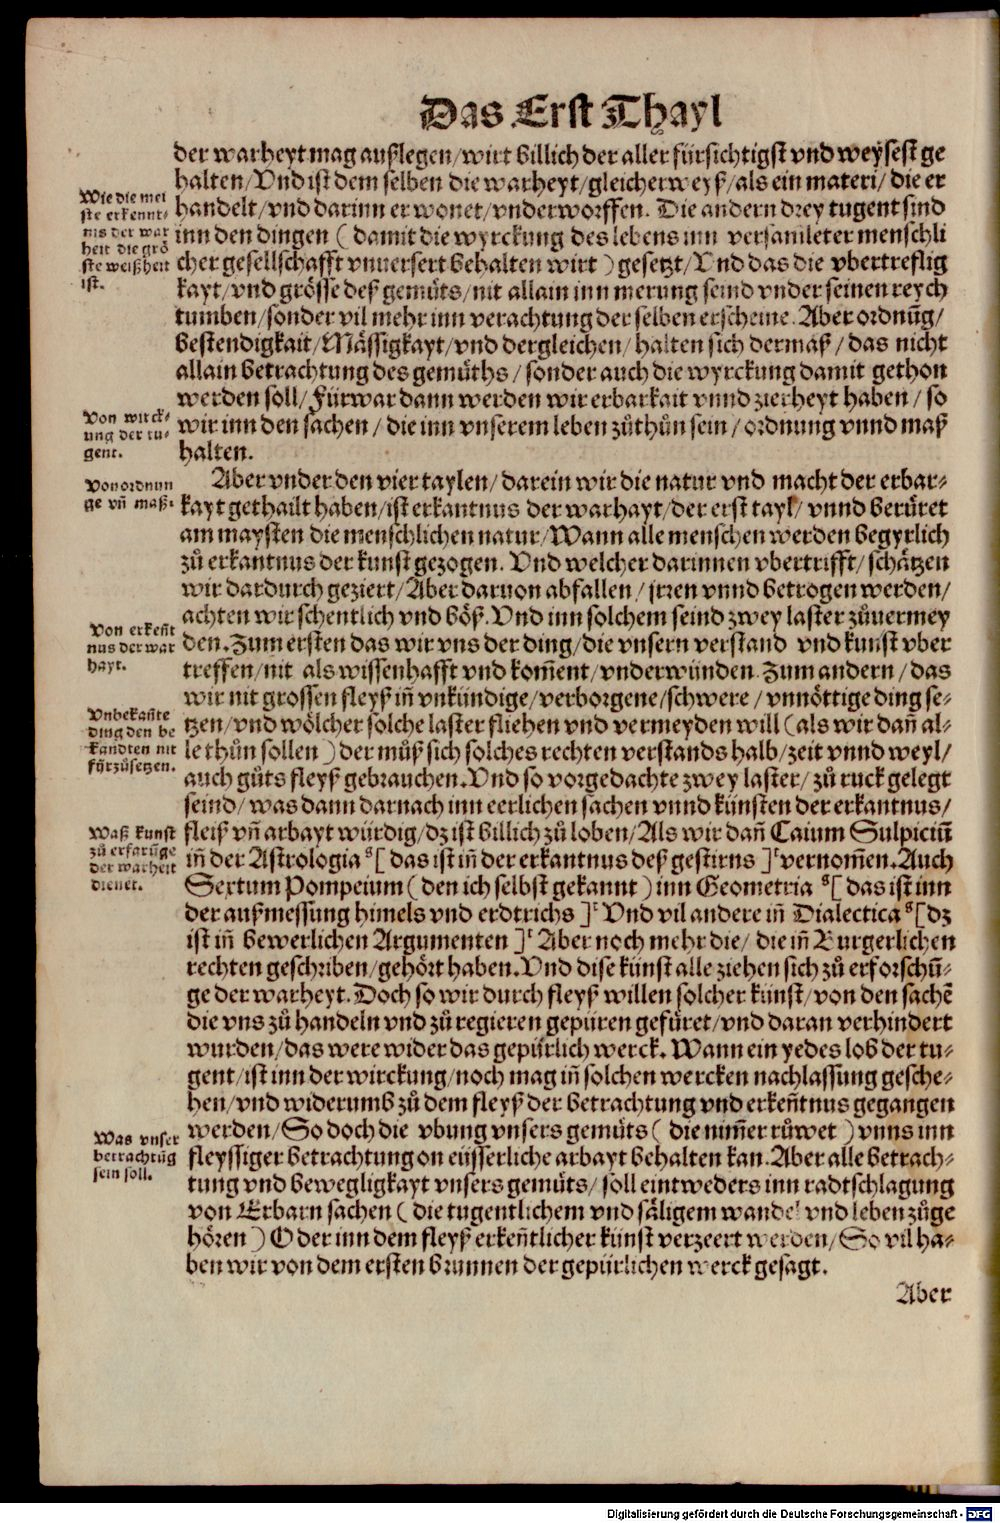 Das Erst Thayl
der warheyt mag außlegen/wirt billich der aller fürsichtigst vnd weysest ge
halten/Vnd ist dem selben die warheyt/gleicherweyß/als ein materi/die er
handelt/vnd darinn er wonet/vnderworffen. Die andern drey tugent sind
inn den dingen (damit die wyrckung des lebens inn versamleter menschli
cher gesellschafft vnuersert behalten wirt) gesetzt/Vnd das die vbertreflig
kayt/vnd grösse deß gemůts/nit allain inn merung seind vnder seinen reych
tumben/sonder vil mehr inn verachtung der selben erscheine. Aber ordnũg/
bestendigkait/Mässigkayt/vnd dergleichen/halten sich dermaß/das nicht
allain betrachtung des gemůths/sonder auch die wyrckung damit gethon
werden soll/Fürwar dann werden wir erbarkait vnnd zierheyt haben/so
wir inn den sachen/die inn vnserem leben zůthůn sein/ordnung vnnd maß
halten.
Wie die mei
ste erkennt-
nis der war
heit die grö
ste weißheit
ist.
Von wirck-
ung der tu-
gent.
Aber vnder den vier taylen/darein wir die natur vnd macht der erbar-
kayt gethailt haben/ist erkantnus der warhayt/der erst tayl/vnnd berüret
am maysten die menschlichen natur/Wann alle menschen werden begyrlich
zů erkantnus der kunst gezogen. Vnd welcher darinnen vbertrifft/schätzen
wir dardurch geziert/Aber daruon abfallen/jrren vnnd betrogen werden/
achten wir schentlich vnd böß. Vnd inn solchem seind zwey laster zůuermey
den. Zum ersten das wir vns der ding/die vnsern verstand vnd kunst vber
treffen/nit als wissenhafft vnd kom̃ent/vnderwünden. Zum andern/das
wir nit grossen fleyß iñ vnkündige/verborgene/schwere/vnnöttige ding se-
tzen/vnd wölcher solche laster fliehen vnd vermeyden will (als wir dañ al-
le thůn sollen) der můß sich solches rechten verstands halb/zeit vnnd weyl/
auch gůts fleyß gebrauchen. Vnd so vorgedachte zwey laster/zů ruck gelegt
seind/was dann darnach inn eerlichen sachen vnnd künsten der erkantnus/
fleiß vñ arbayt würdig/dz ist billich zů loben/Als wir dañ Caium Sulpiciũ
iñ der Astrologia s[das ist iñ der erkantnus deß gestirns]t vernom̃en. Auch
Sextum Pompeium (den ich selbst gekannt) inn Geometria s[das ist inn
der außmessung himels vnd erdtrichs]t Vnd vil andere iñ Dialectica s[dz
ist iñ bewerlichen Argumenten]t Aber noch mehr die/die iñ Burgerlichen
rechten geschriben/gehört haben. Vnd dise künst alle ziehen sich zů erforschũ-
ge der warheyt. Doch so wir durch fleyß willen solcher künst/von den sachẽ
die vns zů handeln vnd zů regieren gepüren gefüret/vnd daran verhindert
wurden/das were wider das gepürlich werck. Wann ein yedes lob der tu-
gent/ist inn der wirckung/noch mag iñ solchen wercken nachlassung gesche-
hen/vnd widerumb zů dem fleyß der betrachtung vnd erkeñtnus gegangen
werden/So doch die vbung vnsers gemůts (die nim̃er růwet) vnns inn
fleyssiger betrachtung on eüsserliche arbayt behalten kan. Aber alle betrach-
tung vnd bewegligkayt vnsers gemůts/soll eintweders inn radtschlagung
von Erbarn sachen (die tugentlichem vnd säligem wandel vnd leben zůge
hören) Oder inn dem fleyß erkeñtlicher künst verzeert werden/So vil ha-
ben wir von dem ersten brunnen der gepürlichen werck gesagt.
Von ordnun
ge vñ maß.
Von erkeñt
nus der war
hayt.
Vnbekañte
ding den be
kandten nit
fürzůsetzen.
Waß kunst
zů erfarũge
der warheit
dienet.
Was vnser
betrachtũg
sein soll.
Aber
Digitalisierung gefördert durch die Deutsche Forschungsgemeinschaft - DFG